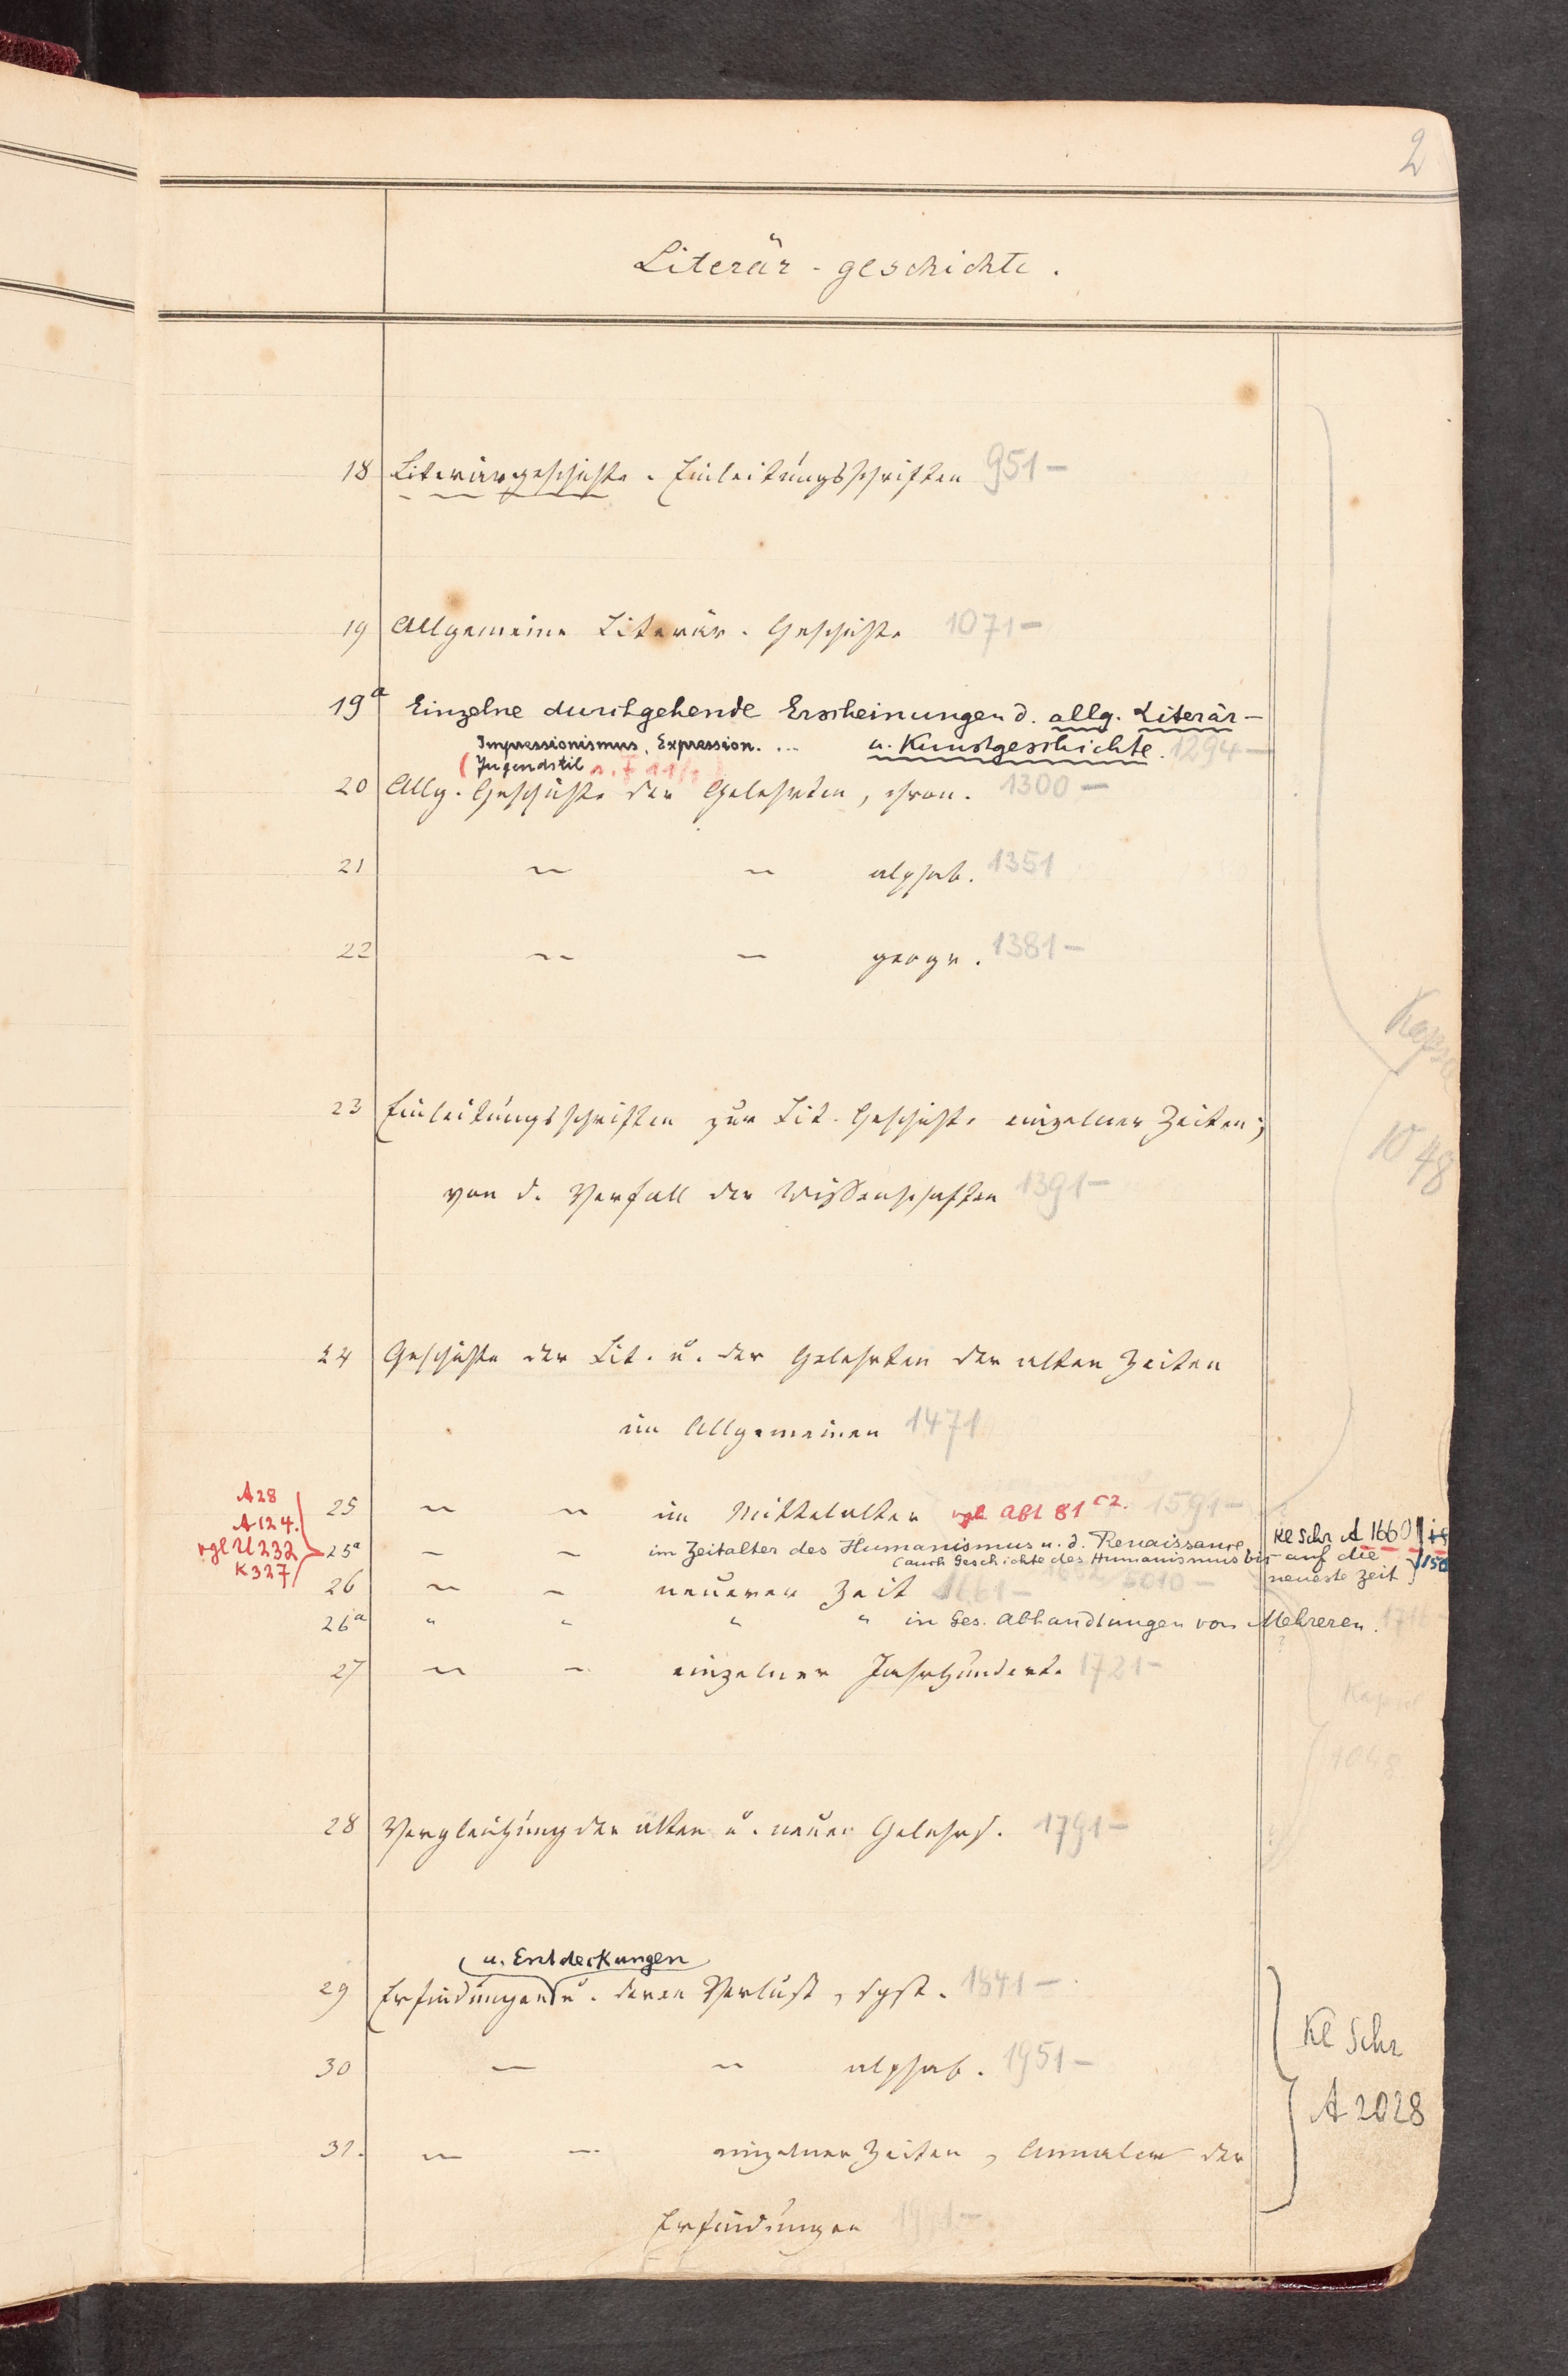 2
Literär-geschichte.
18 Literärgeschichte. Einleitungsschriften 951 –
19 Allgemeine Literär. Geschichte 1071 –
19a Einzelne durchgehende Erscheinungen d. allg. Literär-
Impressionismus, Expression. ... u. Kunstgeschichte. 1294 –
(Jugendstil
20 Allg. Geschichte der Gelehrten, chron. 1300 –
21 – – alphab. 1351
22 – – geogr. 1381 –
Kapsel
1048
23 Einleitungsschriften zur Lit. Geschichte einzelner Zeiten;
von d. Verfall der Wissenschaften 1391 –
24 Geschichte der Lit. u. der Gelehrten der alten Zeiten
im Allgemeinen 1471
A28
A124.
vgl U232
K327
25 – – im Mittelalter vgl. Abt 81 c2. 1591 –
25a – – im Zeitalter des Humanismus u. d. Renaissance, Kl Schr A 1660
(auch Geschichte des Humanismus bis auf die
neueste Zeit)
26 – – neuerer Zeit 1661 – 5010 –
26a " " " " in Ges. Abhandlungen von Mehreren. 1716
27 – – einzelner Jahrhunderte 1721 –
Kapsel
1048
28 Vergleichung der alten u. neuen Gelehrs. 1791 –
u. Entdeckungen
29 Erfindungen u. deren Verlust, syst. 1841 –
Kl Schr
A 2028
30 – – alphab. 1951 –
31. – – einzelner Zeiten, Annalen der
Erfindungen